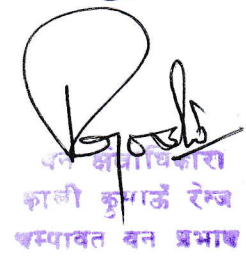 वन क्षेत्राधिकारी
काली कुमाऊँ रेन्ज
चम्पावत वन प्रभाग